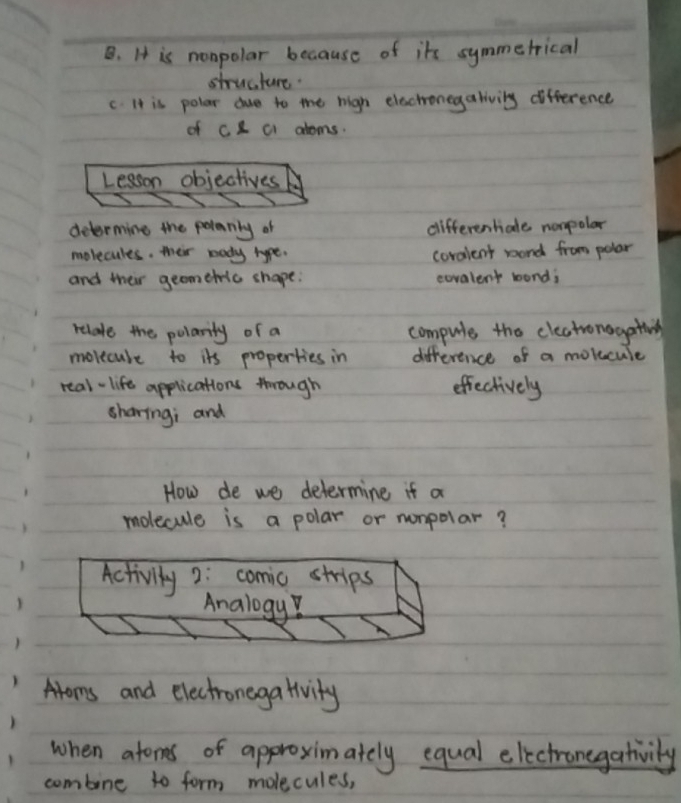 B. It is nonpolar because of its symmetrical
structure.
C. It is polar due to the high electronegativity difference
of C & Cl atoms.
Lesson Objectives
determine the polarity of
molecules, their body type,
and their geometric shape;
differentiate nonpolar
covalent bond from polar
covalent bond;
relate the polarity of a
molecule to its properties in
real-life applications through
sharing; and
compute the electronegativity
difference of a molecule
effectively
How de we determine if a
molecule is a polar or nonpolar ?
Activity 2: comic strips
Analogy!
Atoms and electronegativity
When atoms of approximately equal electronegativity
combine to form molecules,